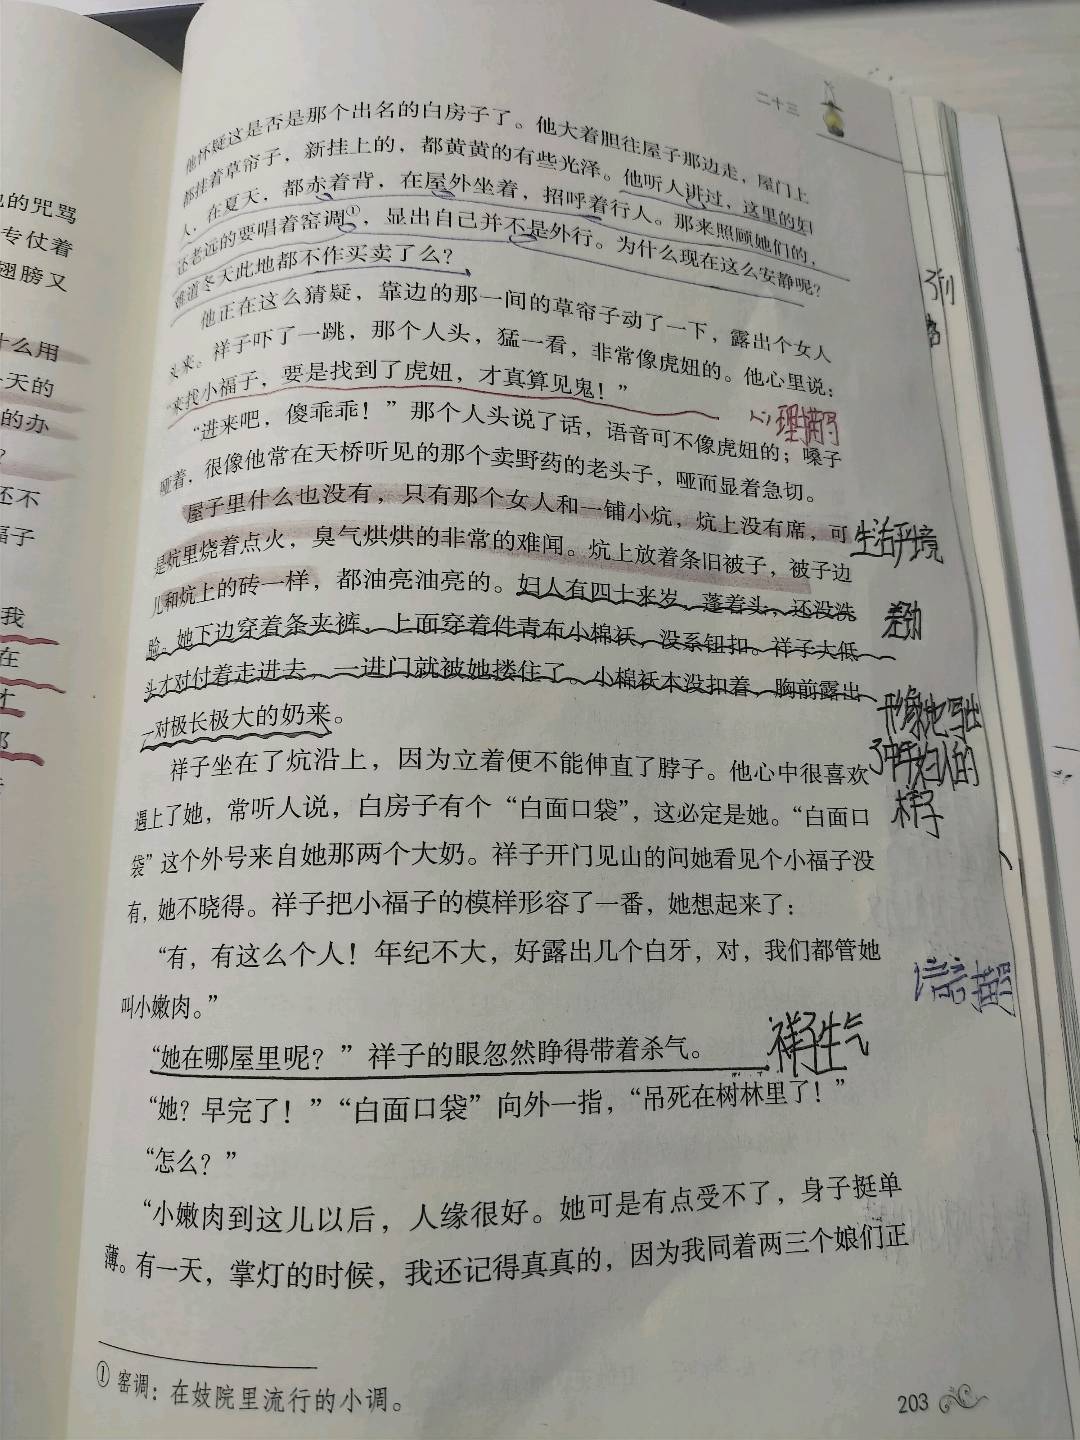 的咒骂
专仗着
翅膀又
什么用
天的
的办
？
还不
福子
我
在
才
那
二十三
他怀疑这是否是那个出名的白房子了。他大着胆往屋子那边走，屋门上
都挂着草帘子，新挂上的，都黄黄的有些光泽。他听人讲过，这里的妇
人，在夏天，都赤着背，在屋外坐着，招呼着行人。那来照顾她们的，
还老远的要唱着窑调①，显出自己并不是外行。为什么现在这么安静呢？
难道冬天此地都不作买卖了么？
他正在这么猜疑，靠边的那一间的草帘子动了一下，露出个女人
头来。祥子吓了一跳，那个人头，猛一看，非常像虎妞的。他心里说：
“来找小福子，要是找到了虎妞，才真算见鬼！”
心理描写
“进来吧，傻乖乖！”那个人头说了话，语音可不像虎妞的；嗓子
哑着，很像他常在天桥听见的那个卖野药的老头子，哑而显着急切。
屋子里什么也没有，只有那个女人和一铺小炕，炕上没有席，可
是炕里烧着点火，臭气烘烘的非常的难闻。炕上放着条旧被子，被子边
儿和炕上的砖一样，都油亮油亮的。妇人有四十来岁，蓬着头，还没洗
脸。她下边穿着条夹裤，上面穿着件青布小棉袄，没系钮扣。祥子大低
头才对付着走进去，一进门就被她搂住了。小棉袄本没扣着，胸前露出
一对极长极大的奶来。
生活环境
差劲
形象地写出
了中年妇人的
样子
祥子坐在了炕沿上，因为立着便不能伸直了脖子。他心中很喜欢
遇上了她，常听人说，白房子有个“白面口袋”，这必定是她。“白面口
袋”这个外号来自她那两个大奶。祥子开门见山的问她看见个小福子没
有，她不晓得。祥子把小福子的模样形容了一番，她想起来了：
“有，有这么个人！年纪不大，好露出几个白牙，对，我们都管她
叫小嫩肉。”
语言描写
“她在哪屋里呢？”祥子的眼忽然睁得带着杀气。
祥子生气
“她？早完了！”“白面口袋”向外一指，“吊死在树林里了！”
“怎么？”
“小嫩肉到这儿以后，人缘很好。她可是有点受不了，身子挺单
薄。有一天，掌灯的时候，我还记得真真的，因为我同着两三个娘们正
①窑调：在妓院里流行的小调。
203